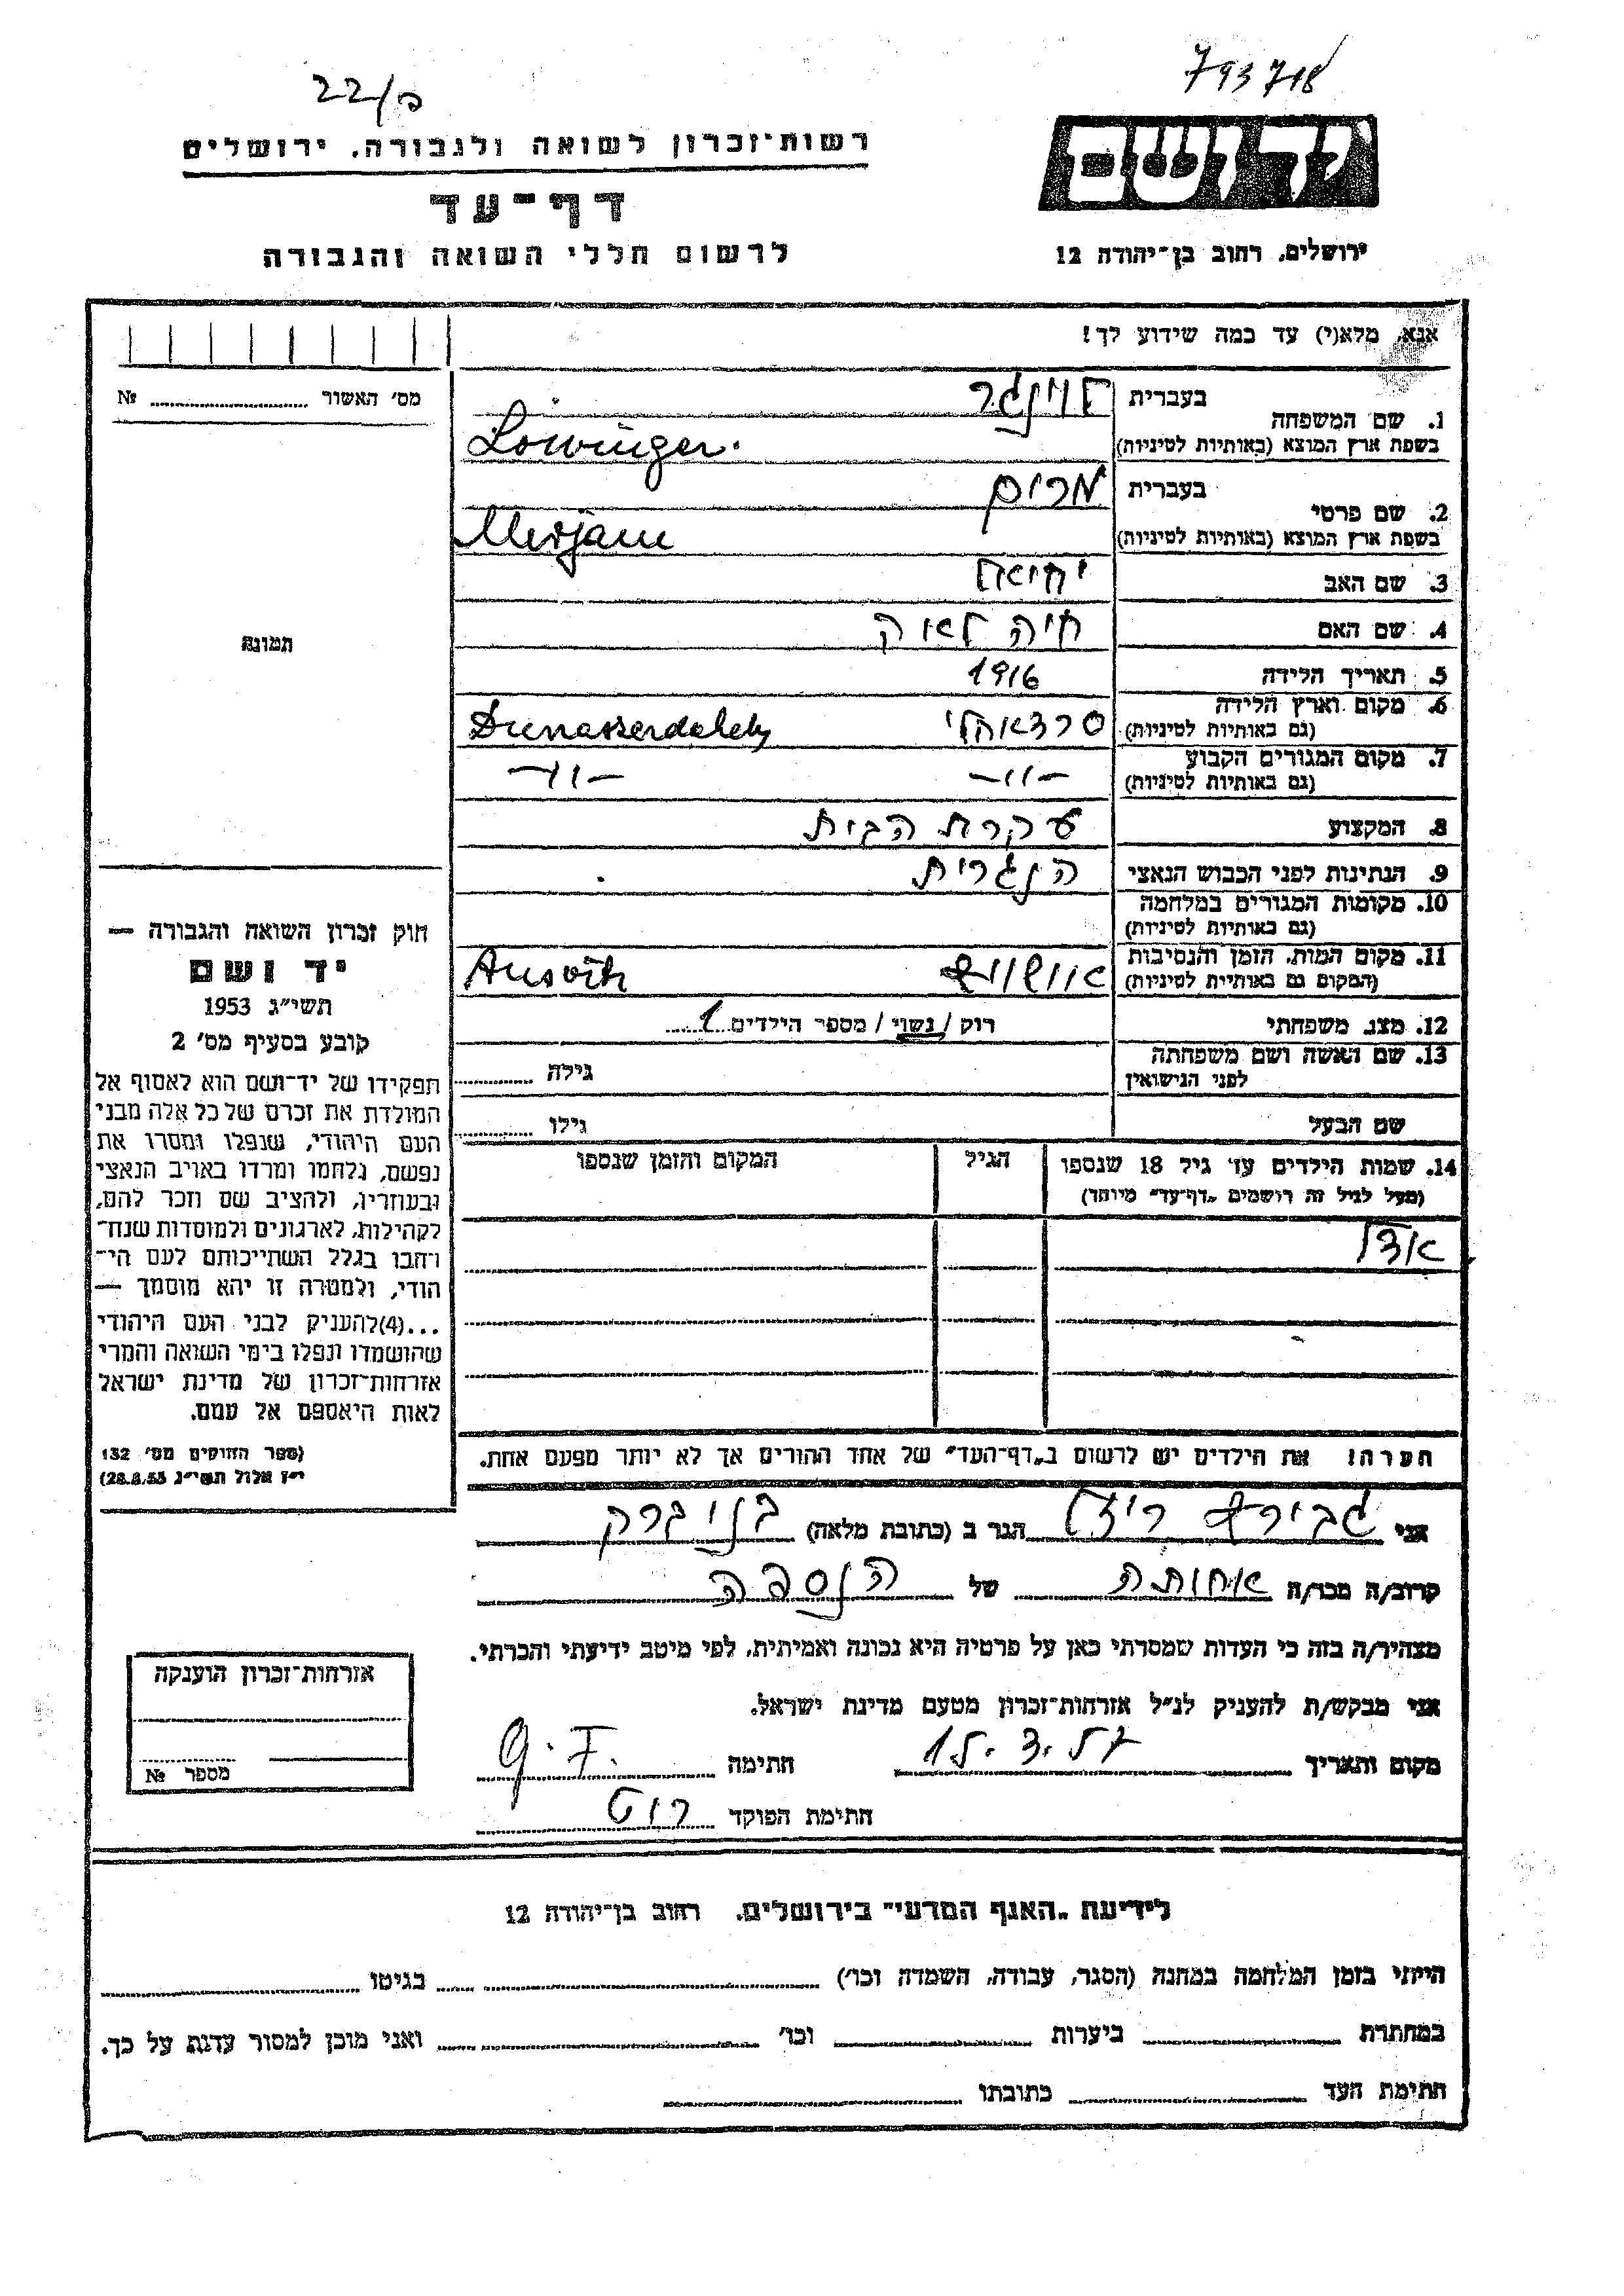 793718
22/ם
יד ושם
רשות־זכרון לשואה ולגבורה, ירושלים
דף־עד
לרשום חללי השואה והגבורה
ירושלים, רחוב בן־יהודה 12
אנא, מלא(י) עד כמה שידוע לך!
מס' האשור № 
1. שם המשפחה
בעברית לוינגר
בשפת ארץ המוצא (באותיות לטיניות) Lowinger.
2. שם פרטי
בעברית מרים
בשפת ארץ המוצא (באותיות לטיניות) Mirjam
3. שם האב יחיאל
4. שם האם חיה לאה
5. תאריך הלידה 1916
6. מקום וארץ הלידה
(גם באותיות לטיניות) סרדאהלי Dunasserdahely
7. מקום המגורים הקבוע
(גם באותיות לטיניות) –״– –״–
8. המקצוע עקרת הבית
9. הנתינות לפני הכבוש הנאצי הנגרית
10. מקומות המגורים במלחמה
(גם באותיות לטיניות)
11. מקום המות, הזמן והנסיבות
(המקום גם באותיות לטיניות) אושוויץ Ausvitz
12. מצב משפחתי רוק / נשוי / מספר הילדים 1
13. שם האשה ושם משפחתה
לפני הנישואין גילה
שם הבעל גילו
14. שמות הילדים עד גיל 18 שנספו הגיל המקום והזמן שנספו
(מעל לגיל זה רושמים „דף־עד" מיוחד)
הערה! את הילדים יש לרשום ב„דף־העד" של אחד ההורים אך לא יותר מפעם אחת.
תמונה
חוק זכרון השואה והגבורה —
יד ושם
תשי"ג 1953
קובע בסעיף מס' 2
תפקידו של יד־ושם הוא לאסוף אל
המולדת את זכרם של כל אלה מבני
העם היהודי, שנפלו ומסרו את
נפשם, נלחמו ומרדו באויב הנאצי
ובעוזריו, ולהציב שם וזכר להם,
לקהילות, לארגונים ולמוסדות שנח־
רחבו בגלל השתייכותם לעם הי־
הודי, ולמטרה זו יהא מוסמך —
...(4)להעניק לבני העם היהודי
שהושמדו ונפלו בימי השואה והמרי
אזרחות־זכרון של מדינת ישראל
לאות היאספם אל עמם.
(ספר החוקים מס' 132
י"ז אלול תשי"ג 28.8.53)
אני הגר ב (כתובת מלאה) בני ברק
קרוב/ה מכר/ה אחותה של הנספה
מצהיר/ה בזה כי העדות שמסרתי כאן על פרטיה היא נכונה ואמיתית, לפי מיטב ידיעתי והכרתי.
אני מבקש/ת להעניק לנ"ל אזרחות־זכרון מטעם מדינת ישראל.
מקום ותאריך 15.3.57 חתימה G.F.
חתימת הפוקד רוט
אזרחות־זכרון הוענקה
מספר №
לידיעת „האגף המדעי" בירושלים, רחוב בן־יהודה 12
הייתי בזמן המלחמה במחנה (הסגר, עבודה, השמדה וכו') בגיטו
במחתרת ביערות וכו' ואני מוכן למסור עדות על כך.
חתימת העד כתובתו